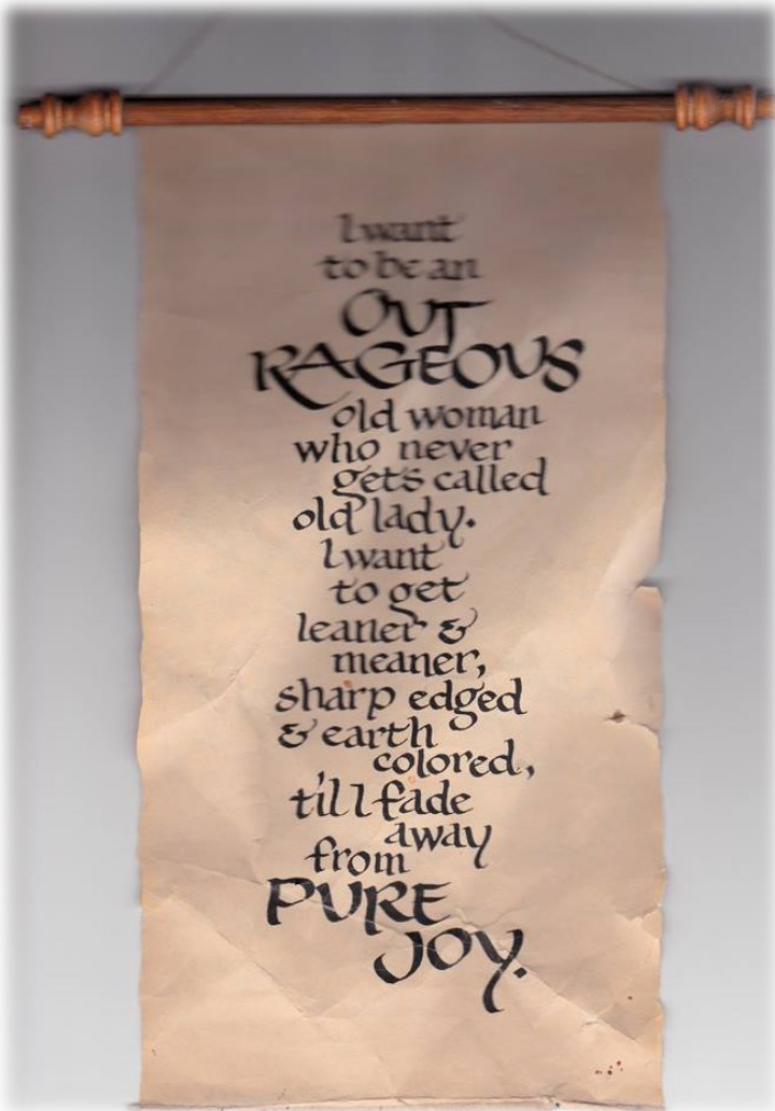 I want
to be an
OUT
RAGEOUS
old woman
who never
gets called
old lady.
I want
to get
leaner &
meaner,
sharp edged
& earth
colored,
'til I fade
away
from
PURE
JOY.